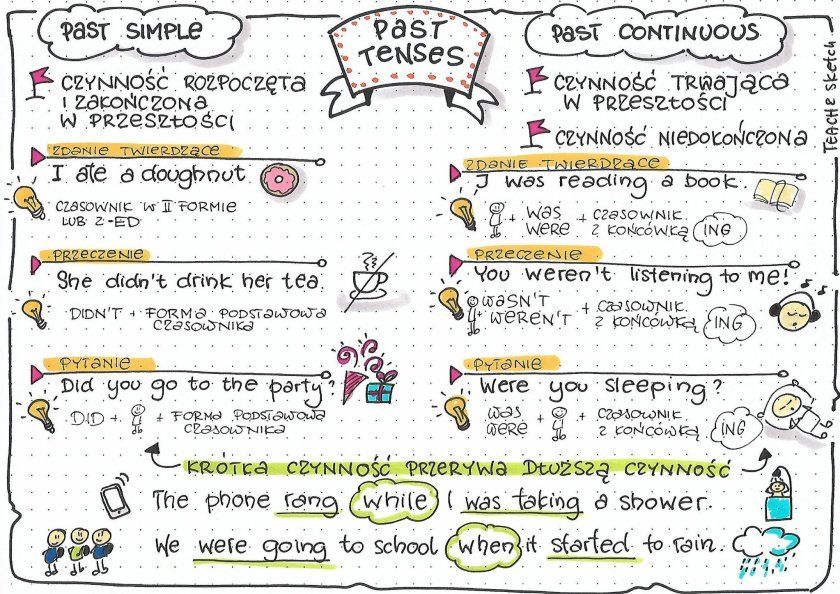 PAST SIMPLE
PAST
TENSES
PAST CONTINUOUS
CZYNNOŚĆ ROZPOCZĘTA
I ZAKOŃCZONA
W PRZESZŁOŚCI
CZYNNOŚĆ TRWAJĄCA
W PRZESZŁOŚCI
CZYNNOŚĆ NIEDOKOŃCZONA
TEACHE sketch
ZDANIE TWIERDZĄCE
I ate a doughnut
CZASOWNIK W II FORMIE
LUB Z -ED
PRZECZENIE
She didn't drink her tea.
DIDN'T + FORMA PODSTAWOWA
CZASOWNIKA
PYTANIE
Did you go to the party?
DID + + FORMA PODSTAWOWA
CZASOWNIKA
ZDANIE TWIERDZĄCE
I was reading a book.
+ WAS + CZASOWNIK
WERE Z KOŃCÓWKĄ ING
PRZECZENIE
You weren't listening to me!
WASN'T + CZASOWNIK
+ WEREN'T Z KOŃCÓWKĄ ING
PYTANIE
Were you sleeping?
WAS + + CZASOWNIK
WERE Z KOŃCÓWKĄ ING
KRÓTKA CZYNNOŚĆ PRZERYWA DŁUŻSZĄ CZYNNOŚĆ
The phone rang while I was taking a shower.
We were going to school when it started to rain.